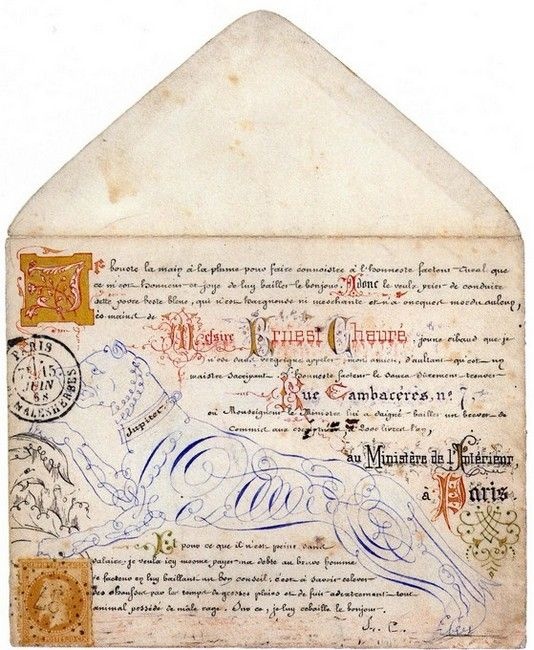 Je boute la main à la plume pour faire connoistre à l'honneste facteur rural que
ce m'est honneur et joye de luy bailler le bonjour. Adonc le veulx prier de conduire
ceste povre beste bleue, qui n'est hargneuse ni meschante et n'a oncques mordu aulcuns,
ès mains de Messire Ernest Chauré, jeune ribaud que je
n'ose sans vergoigne appeler mon amien, d'aultant qu'est ung
maistre sacripant. honneste facteur le saura seurement trouver
Rue Cambacérès, no. 7,
où Monseigneur le Ministre lui a daigné bailler un brevet de
Commis aux à 2000 livres l'an,
au Ministère de l'Intérieur,
à Paris
Jupiter
PARIS
15
JUIN
68
MALESHERBES
Et pour ce que il n'est peine sans
salaire, je veulx icy mesme payer ma debte au brave homme
de facteur en luy baillant un bon conseil: c'est à savoir
des chausses par les temps de grosses pluies et de fuir tout
animal possédé de male rage. Sur ce, je luy rebaille le bonjour.